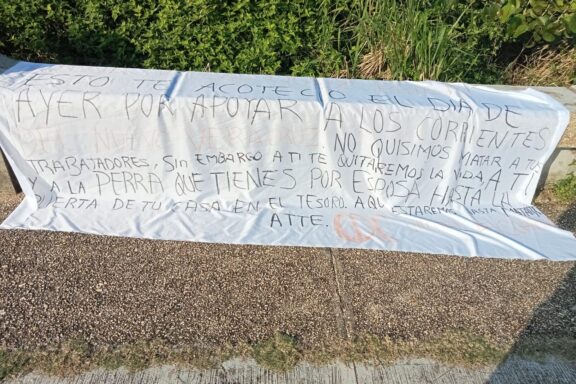 ESTO TE ACOTECO EL DIA DE
AYER POR APOYAR A LOS CORRIENTES
NO QUISIMOS MATAR A TUS
TRABAJADORES, SIN EMBARGO A TI TE QUITAREMOS LA VIDA A TI
Y A LA PERRA QUE TIENES POR ESPOSA HASTA LA
PUERTA DE TU CASA EN EL TESORO. AQUI ESTAREMOS HASTA
ATTE.